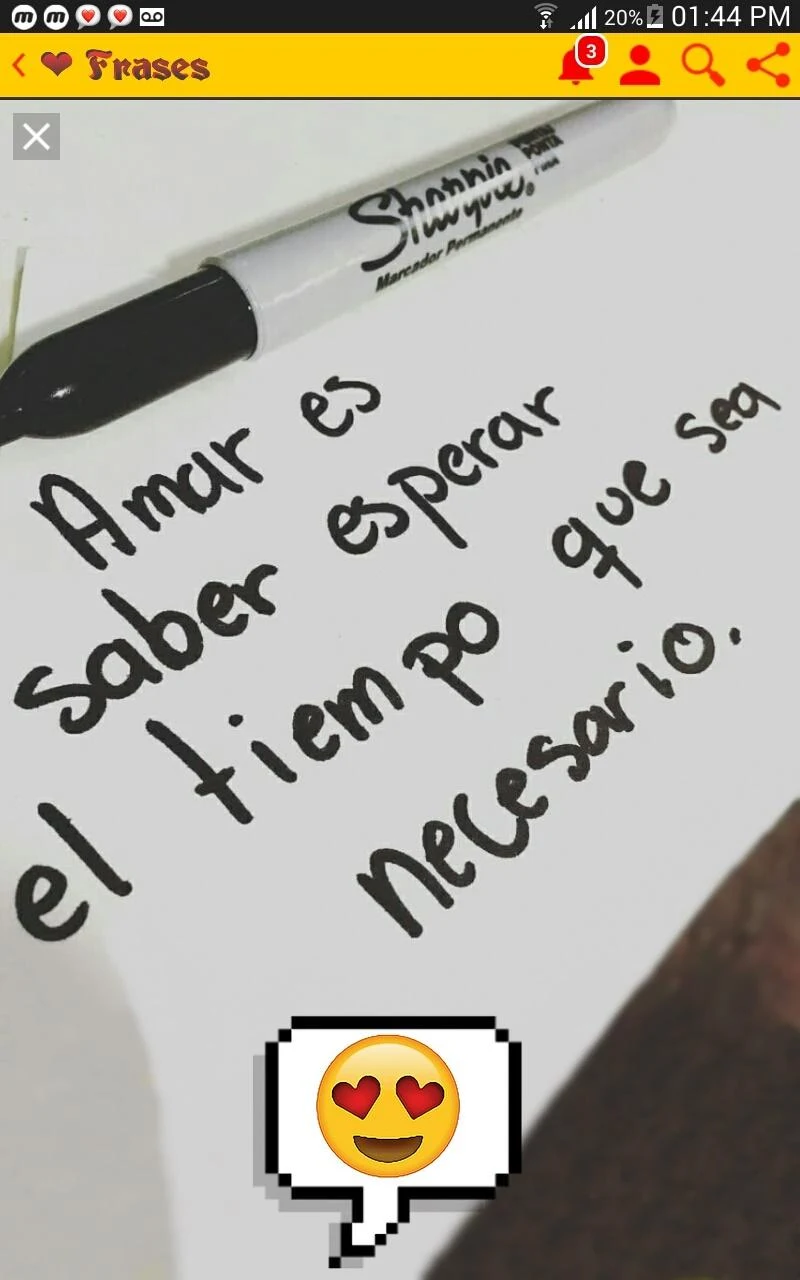 20% 01:44 PM
Frases
3
Sharpie®
PUNTA
FINA
Marcador Permanente
Amar es
saber esperar
el tiempo que sea
necesario.